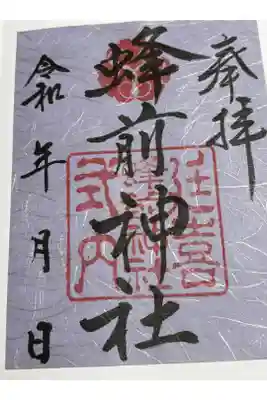 奉拝
蜂前神社
令和 年 月 日
式内